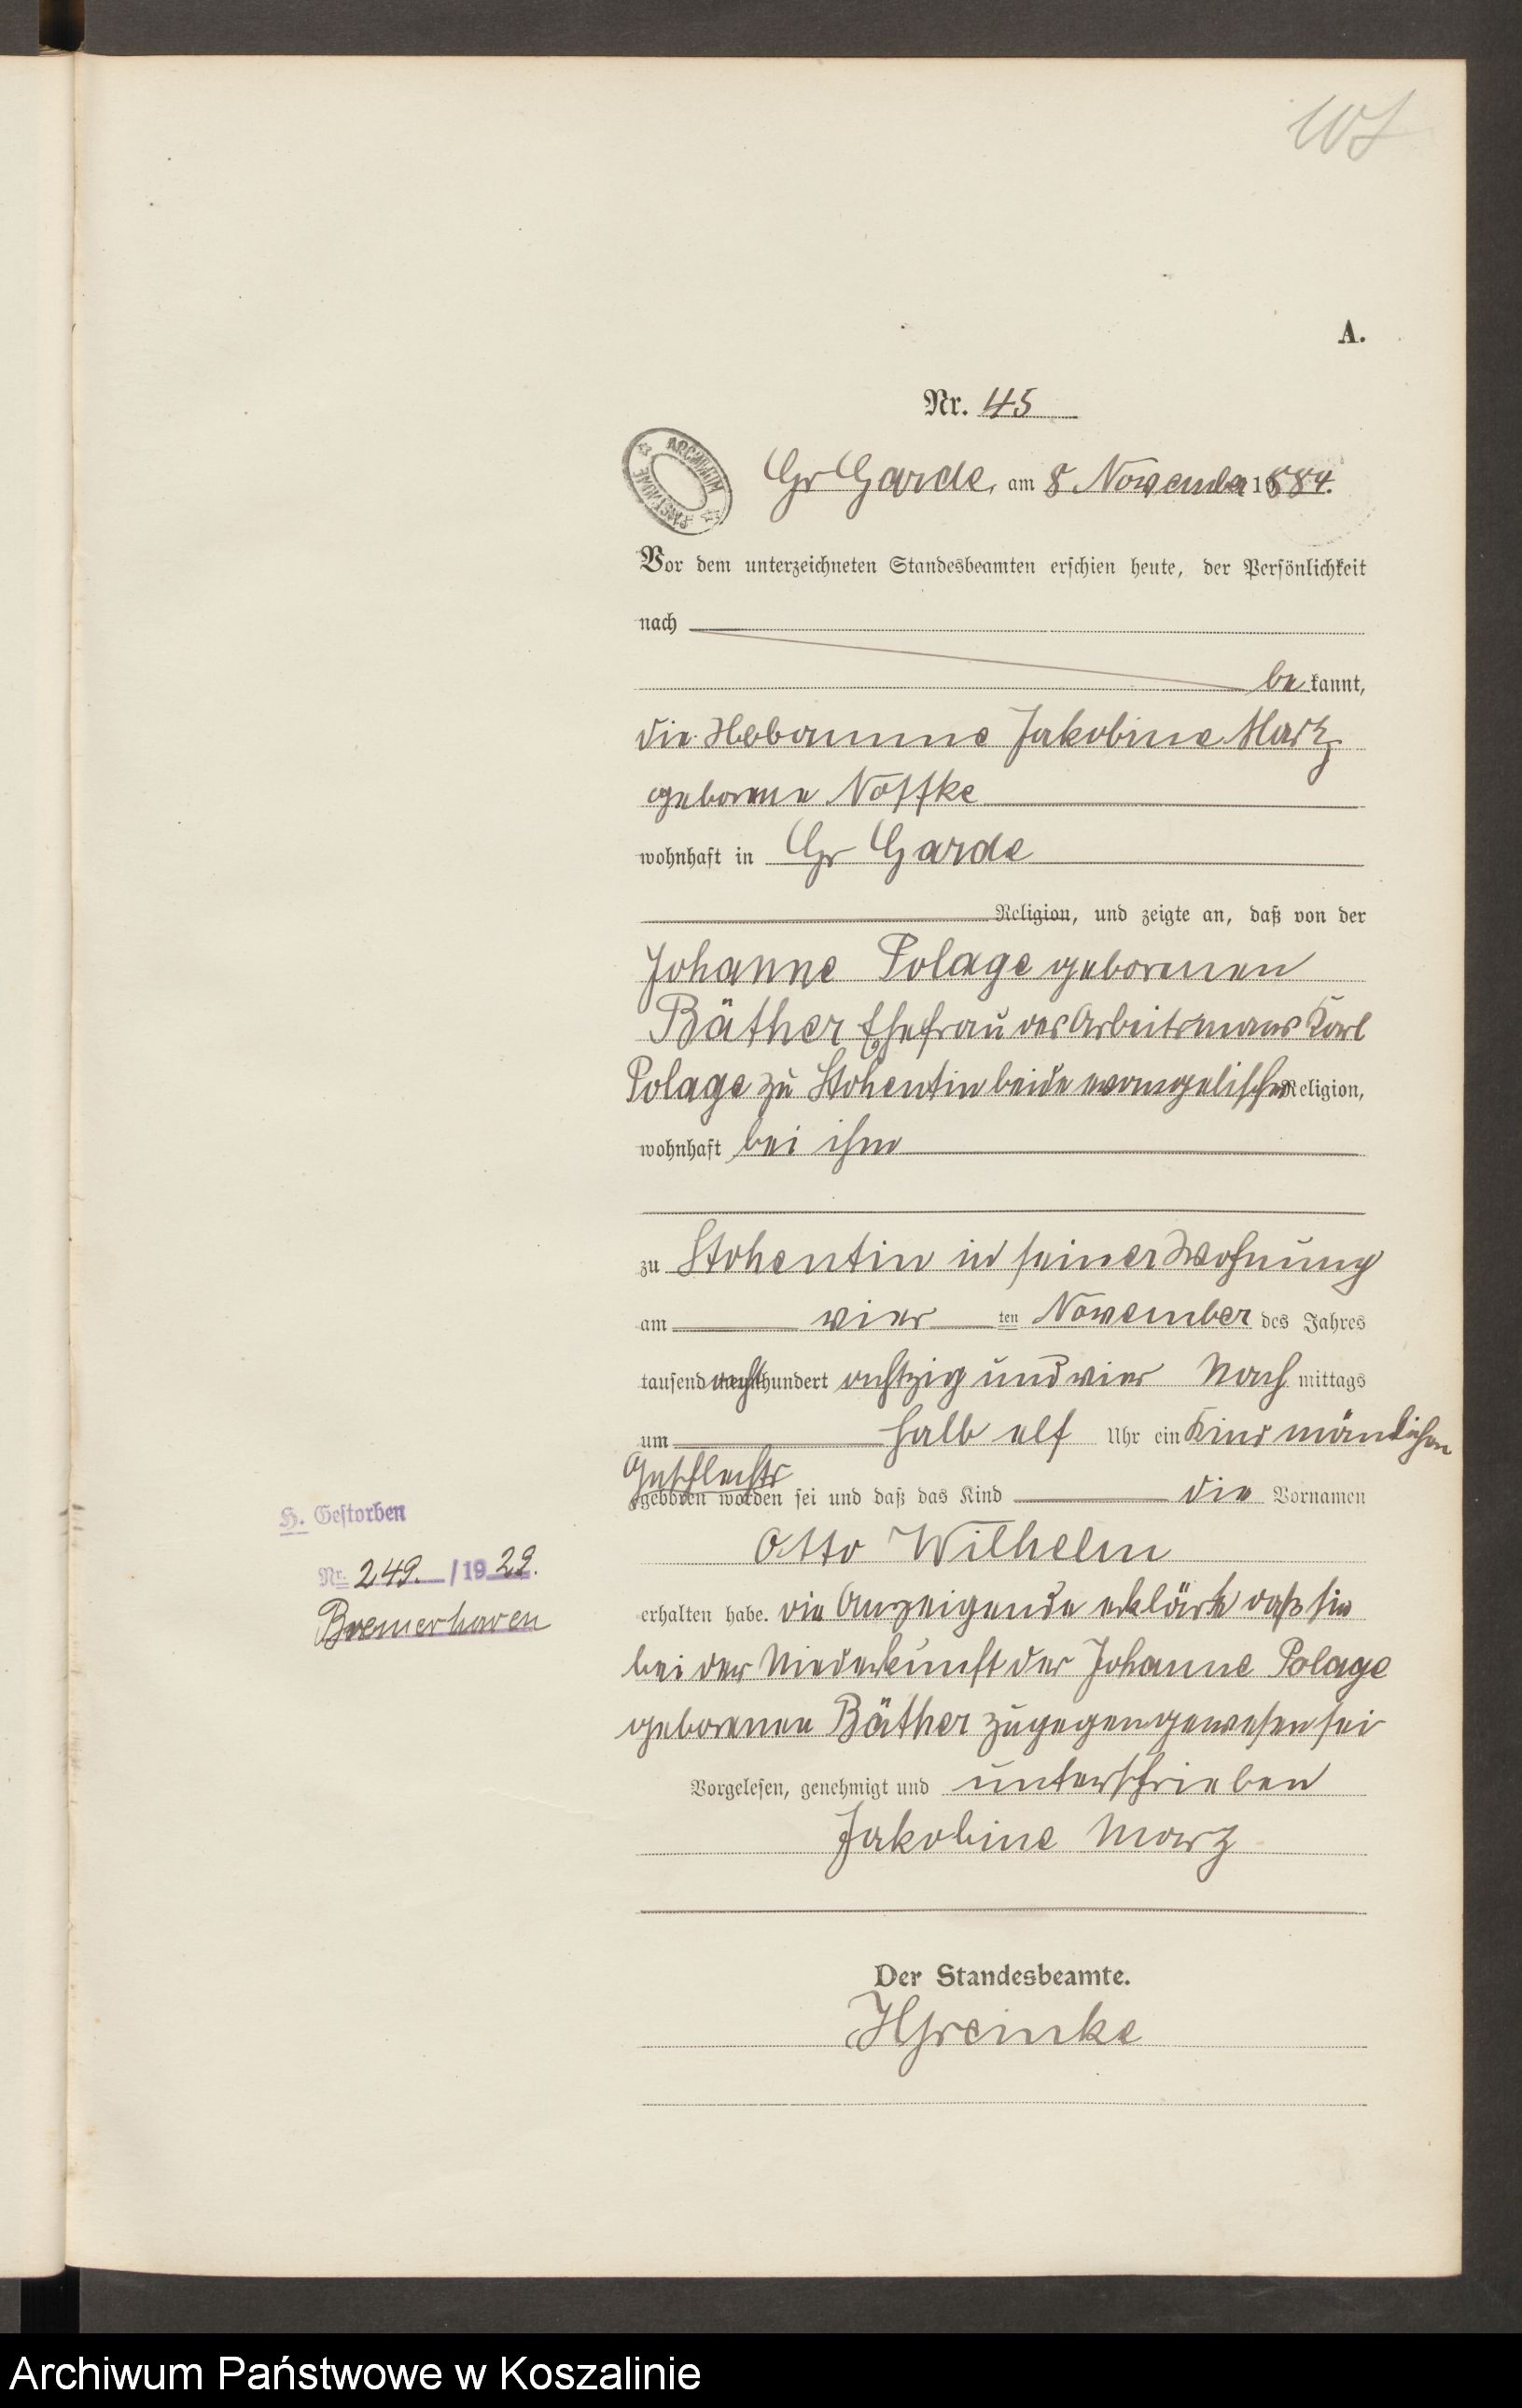 107
A.
Nr. 45
Gr Garde, am 8 November 1884.
Vor dem unterzeichneten Standesbeamten erschien heute, der Persönlichkeit
nach
bekannt,
die Hebamme Jakobine Marz
geborene Noffke
wohnhaft in Gr Garde
Religion, und zeigte an, daß von der
Johanne Polage geborenen
Bäther Ehefrau des Arbeitsmans Karl
Polage zu Stohentin beide evangelischer Religion,
wohnhaft bei ihm
zu Stohentin in seiner Wohnung
am vier ten November des Jahres
tausend acht hundert achtzig und vier Nach mittags
um halb elf Uhr ein Kind mänlichen
Geschlechts
geboren worden sei und daß das Kind die Vornamen
Otto Wilhelm
erhalten habe. die Anzeigende erklärte daß sie
bei der Niederkunft der Johanne Polage
geborenen Bäther zugegen gewesen sei
Vorgelesen, genehmigt und unterschrieben
Jakobine Marz
Der Standesbeamte.
HGreinke
H. Gestorben
Nr. 249. /1929.
Bremerhaven
ARCHIWUM
PAŃSTWOWE
Archiwum Państwowe w Koszalinie